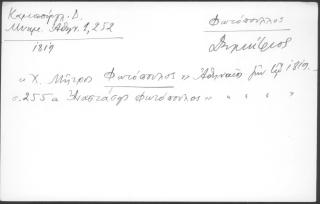 Καμπούρογλ. Δ.
Μνημ. Αθην. 1, 252
1819
Φωτόπουλλος
Δημήτριος
"Χ. Μήτρος Φωτόπουλος" Ἀθηναῖος ζῶν τῷ 1819.
σ. 255 " Ἀναστάσης Φωτόπουλος " " " "